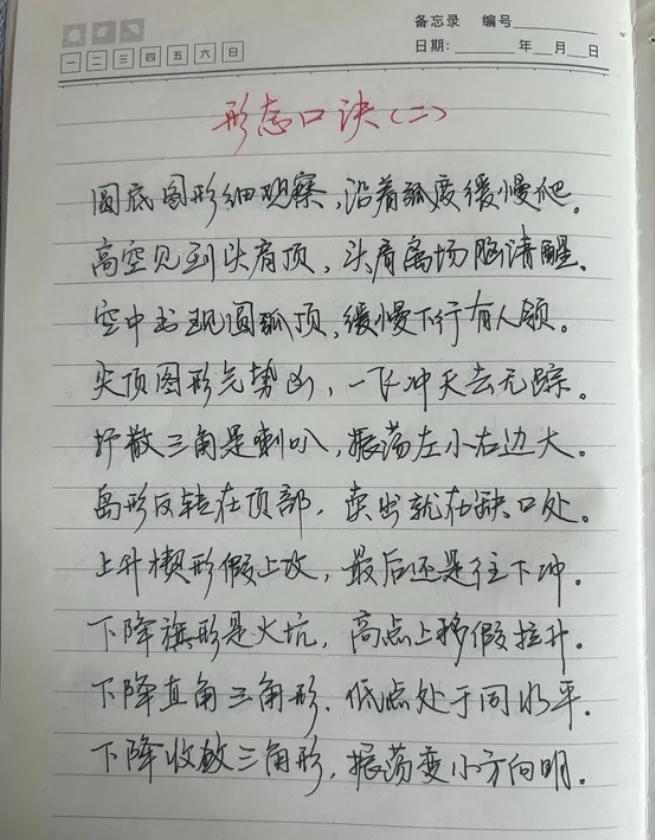 备忘录 编号
一 二 三 四 五 六 日
日期: 年 月 日
形态口诀(二)
圆底图形细观察,沿着弧度缓慢爬。
高空见到头肩顶,头肩离场脑清醒。
空中出现圆弧顶,缓慢下行有人领。
尖顶图形气势凶,一飞冲天去无踪。
扩散三角是喇叭,振荡左小右边大。
岛形反转在顶部,卖出就在缺口处。
上升楔形假上攻,最后还是往下冲。
下降旗形是火坑,高点上移假拉升。
下降直角三角形,低点处于同水平。
下降收敛三角形,振荡变小方向明。